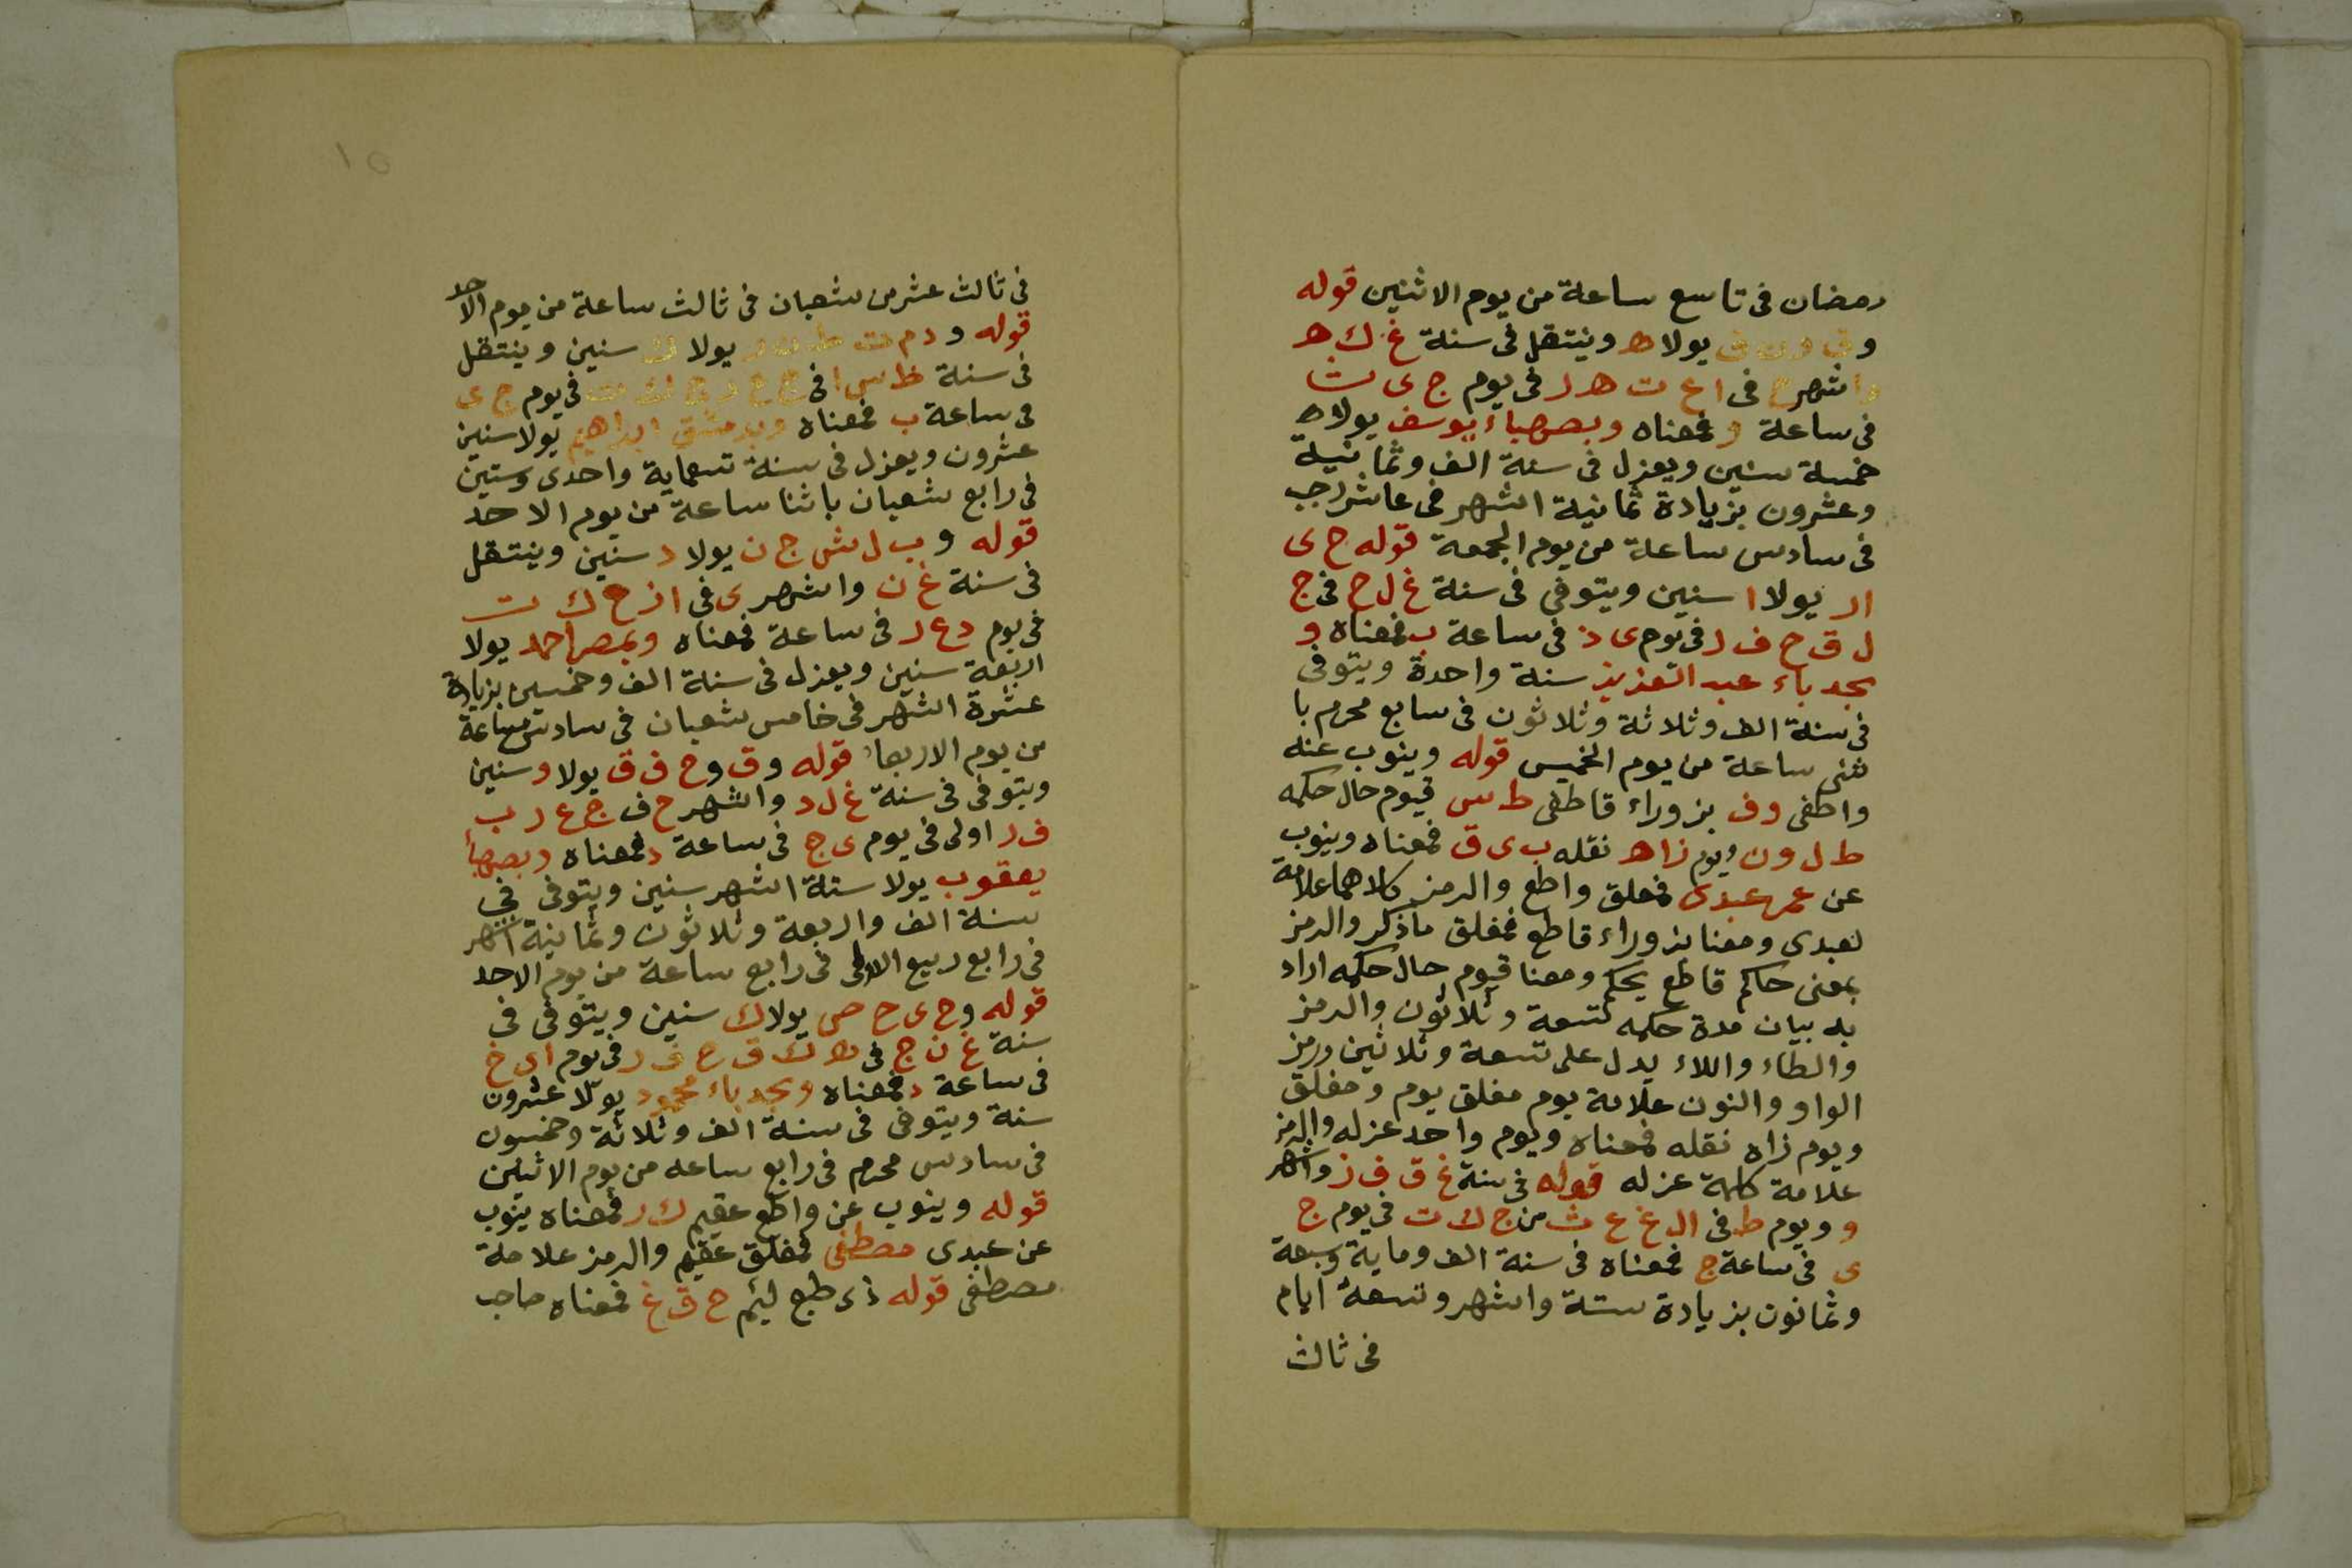 رمضان فى تاسع ساعة من يوم الاثنين قوله
يولاه وينتقل فى سنة غ ك ه
واشهر ح فى ا ع ت ه ر فى يوم ج ى ث
فى ساعة و فمعناه وبصهباء يوسف يولاه
خمسة سنين ويعزل فى سنة الف وثمانية
وعشرون بزيادة ثمانية اشهر فى عاشر رجب
فى سادس ساعة من يوم الجمعة قوله ح ى
ار يولا ا سنين ويتوفى فى سنة غ ل ج فى ج
ل ق ح ف ر فى يوم ى ذ فى ساعة ب فمعناه و
بجد باء عبد العزيز سنة واحدة ويتوفى
فى سنة الف وثلاثة وثلاثون فى سابع محرم با
ثنى ساعة من يوم الخميس قوله وينوب عنه
واطفى وف بزوراء قاطفى ط س قيوم حال حكمه
ط ل ون ويوم زاه نقله ب ى ق فمعناه وينوب
عن عمر عبدى فمعلق واطع والرمز كلاهما علامة
لعبدى ومعنا بزوراء قاطع فمغلق ماذكر والرمز
بمعنى حاكم قاطع يحكم ومعنا قيوم حال حكمه اراد
به بيان مدة حكمه تسعة وثلاثون والرمز
والطاء واللاء يدل على تسعة وثلاثين ورمز
الواو والنون علامة يوم مغلق يوم ومغلق
ويوم زاه نقله فمعناه ويوم واحد عزله والرمز
علامة كلمة عزله قوله فى سنة غ ق ف ز واشهر
و ويوم ط فى ال غ ع ث من ج ك ت فى يوم ج
ى فى ساعة ج فمعناه فى سنة الف وماية وسبعة
وثمانون بزيادة ستة واشهر وتسعة ايام
فى ثالث
فى ثالث عشر من شعبان فى ثالث ساعة من يوم الاحد
قوله و دم يولا ك سنين وينتقل
فى سنة ظ س ا فى فى يوم ج ى
فى ساعة ب فمعناه وبدمشق ابراهيم يولا سنين
عشرون ويعزل فى سنة تسعماية واحدى وستين
فى رابع شعبان باثنا ساعة من يوم الاحد
قوله و ب ل ش ج ن يولا د سنين وينتقل
فى سنة غ ن واشهر ى فى ا ز ع ك ت
فى يوم د ع ر فى ساعة فمعناه وبمصر احمد يولا
اربعة سنين ويعزل فى سنة الف وخمسين بزيادة
عشرة اشهر فى خامس شعبان فى سادس ساعة
من يوم الاربعا قوله وق وح ف ق يولا و سنين
ويتوفى فى سنة غ ل د واشهر ح ف ج ع ر ب
ف ر اولى فى يوم ى ج فى ساعة د فمعناه وبصهبأ
يعقوب يولا ستة اشهر سنين ويتوفى فى
سنة الف واربعة وثلاثون وثمانية اشهر
فى رابع ربيع الاولى فى رابع ساعة من يوم الاحد
قوله وح ى ح ص يولا ك سنين ويتوفى فى
سنة غ ن ج فى ه ك ق ح ف ر فى يوم اى خ
فى ساعة د فمعناه وبجد باء محمود يولا عشرون
سنة ويتوفى فى سنة الف وثلاثة وخمسون
فى سادس محرم فى رابع ساعه من يوم الاثنين
قوله وينوب عن واطع عقيم ك ر فمعناه ينوب
عن عبدى مصطفى فمغلق عقيم والرمز علامة
مصطفى قوله ذى طبع لئيم ح ق غ فمعناه صاحب